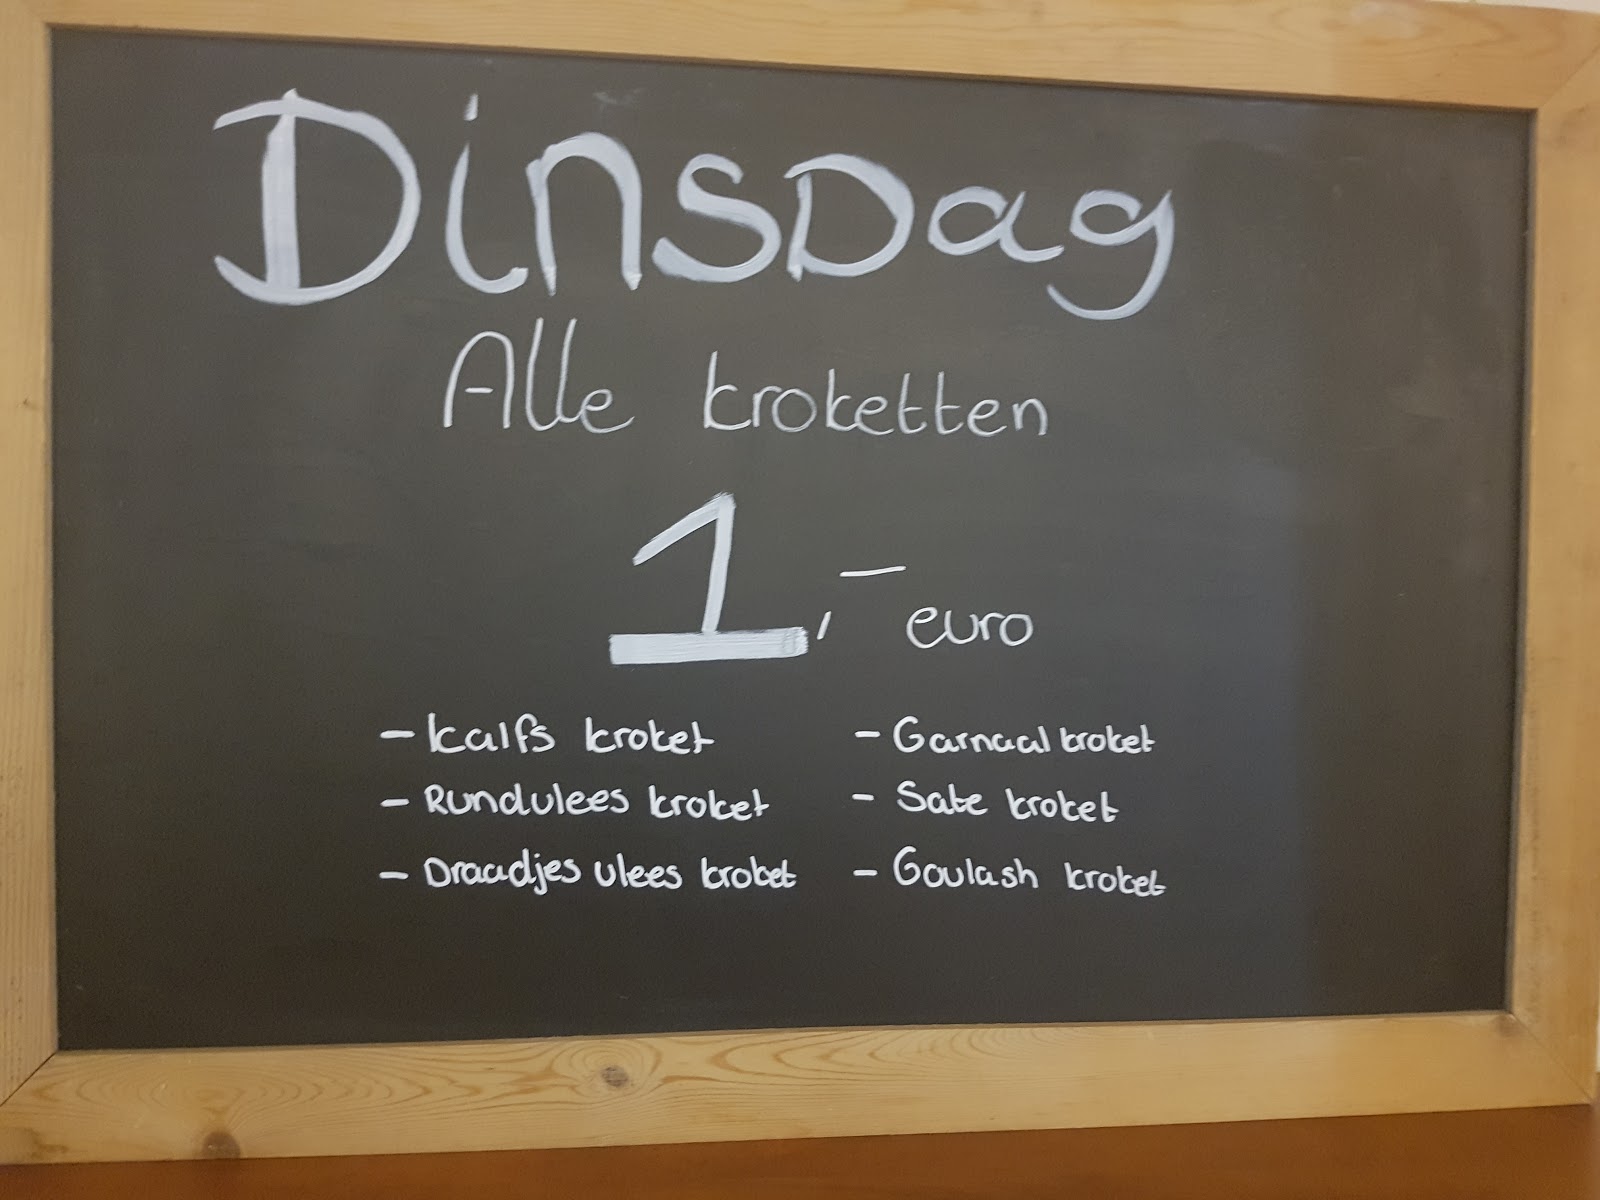 Dinsdag
Alle kroketten
1,- euro
- kalfs kroket
- Rundvlees kroket
- Draadjes vlees kroket
- Garnaal kroket
- Sate kroket
- Goulash kroket